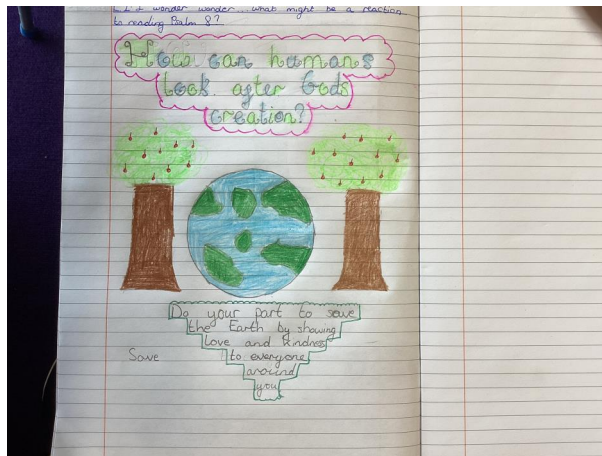 I wonder wonder...what might be a reaction
to reading Psalm 8?
How can humans
look after Gods
creation?
Do your part to save
the Earth by showing
love and kindness
Save
to everyone
around
you